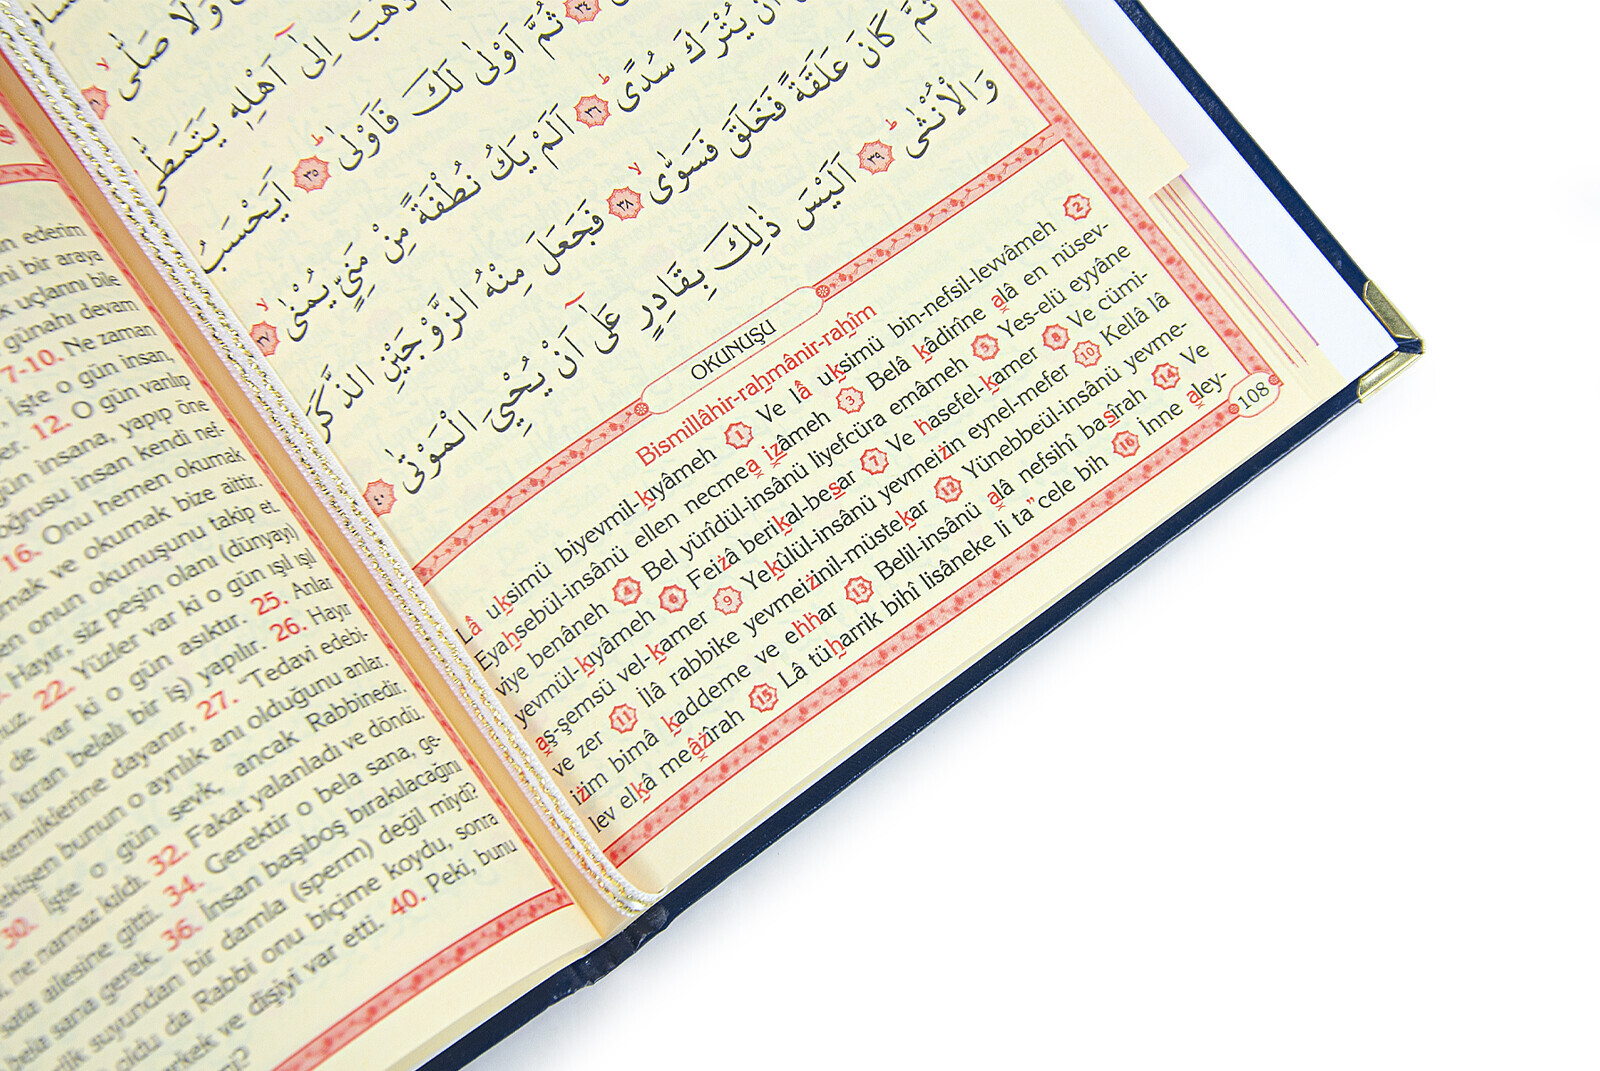 وَلَا صَلّٰىۙ
ذَهَبَ اِلٰٓى اَهْلِهٖ يَتَمَطّٰىۜ
ثُمَّ اَوْلٰى لَكَ فَاَوْلٰىۜ ٣٥ اَيَحْسَبُ
اَنْ يُتْرَكَ سُدًىۜ ٣٦ اَلَمْ يَكُ نُطْفَةً مِنْ مَنِيٍّ يُمْنٰىۙ
ثُمَّ كَانَ عَلَقَةً فَخَلَقَ فَسَوّٰىۙ ٣٨ فَجَعَلَ مِنْهُ الزَّوْجَيْنِ الذَّكَرَ
وَالْاُنْثٰىۜ ٣٩ اَلَيْسَ ذٰلِكَ بِقَادِرٍ عَلٰٓى اَنْ يُحْيِيَ الْمَوْتٰى ٤٠
OKUNUŞU
Bismillâhir-rahmânir-rahîm
Lâ uksimü biyevmil-kıyâmeh 1 Ve lâ uksimü bin-nefsil-levvâmeh 2
Eyahsebül-insânü ellen necmea izâmeh 3 Belâ kâdirîne alâ en nüsev-
viye benâneh 4 Bel yürîdül-insânü liyefcüra emâmeh 5 Yes-elü eyyâne
yevmül-kıyâmeh 6 Feizâ berikal-besar 7 Ve hasefel-kamer 8 Ve cümi-
aş-şemsü vel-kamer 9 Yekûlül-insânü yevmeizin eynel-mefer 10 Kellâ lâ
ve zer 11 İlâ rabbike yevmeizinil-müstekar 12 Yünebbeül-insânü yevme-
izim bimâ kaddeme ve ehhar 13 Belil-insânü alâ nefsihî basîrah 14 Ve
lev elkâ meâzîrah 15 Lâ tüharrik bihî lisâneke li ta"cele bih 16 İnne aley-
108
ederim
bir araya
uçlarını bile
günahı devam
7-10. Ne zaman
İşte o gün insan,
12. O gün varılıp
insana, yapıp öne
insan kendi nef-
16. Onu hemen okumak
ve okumak bize aittir.
onun okunuşunu takip et.
Hayır, siz peşin olanı (dünyayı)
22. Yüzler var ki o gün ışıl ışıl
de var ki o gün asıktır. 25. Anlar
kıran belalı bir iş) yapılır. 26. Hayır
kemiklerine dayanır, 27. "Tedavi edebi-
bunun o ayrılık anı olduğunu anlar.
30. İşte o gün sevk, ancak Rabbinedir.
ne namaz kıldı. 32. Fakat yalanladı ve döndü.
ailesine gitti. 34. Gerektir o bela sana, ge-
bela sana gerek. 36. İnsan başıboş bırakılacağını
suyundan bir damla (sperm) değil miydi?
oldu da Rabbi onu biçime koydu, sonra
erkek ve dişiyi var etti. 40. Peki, bunu